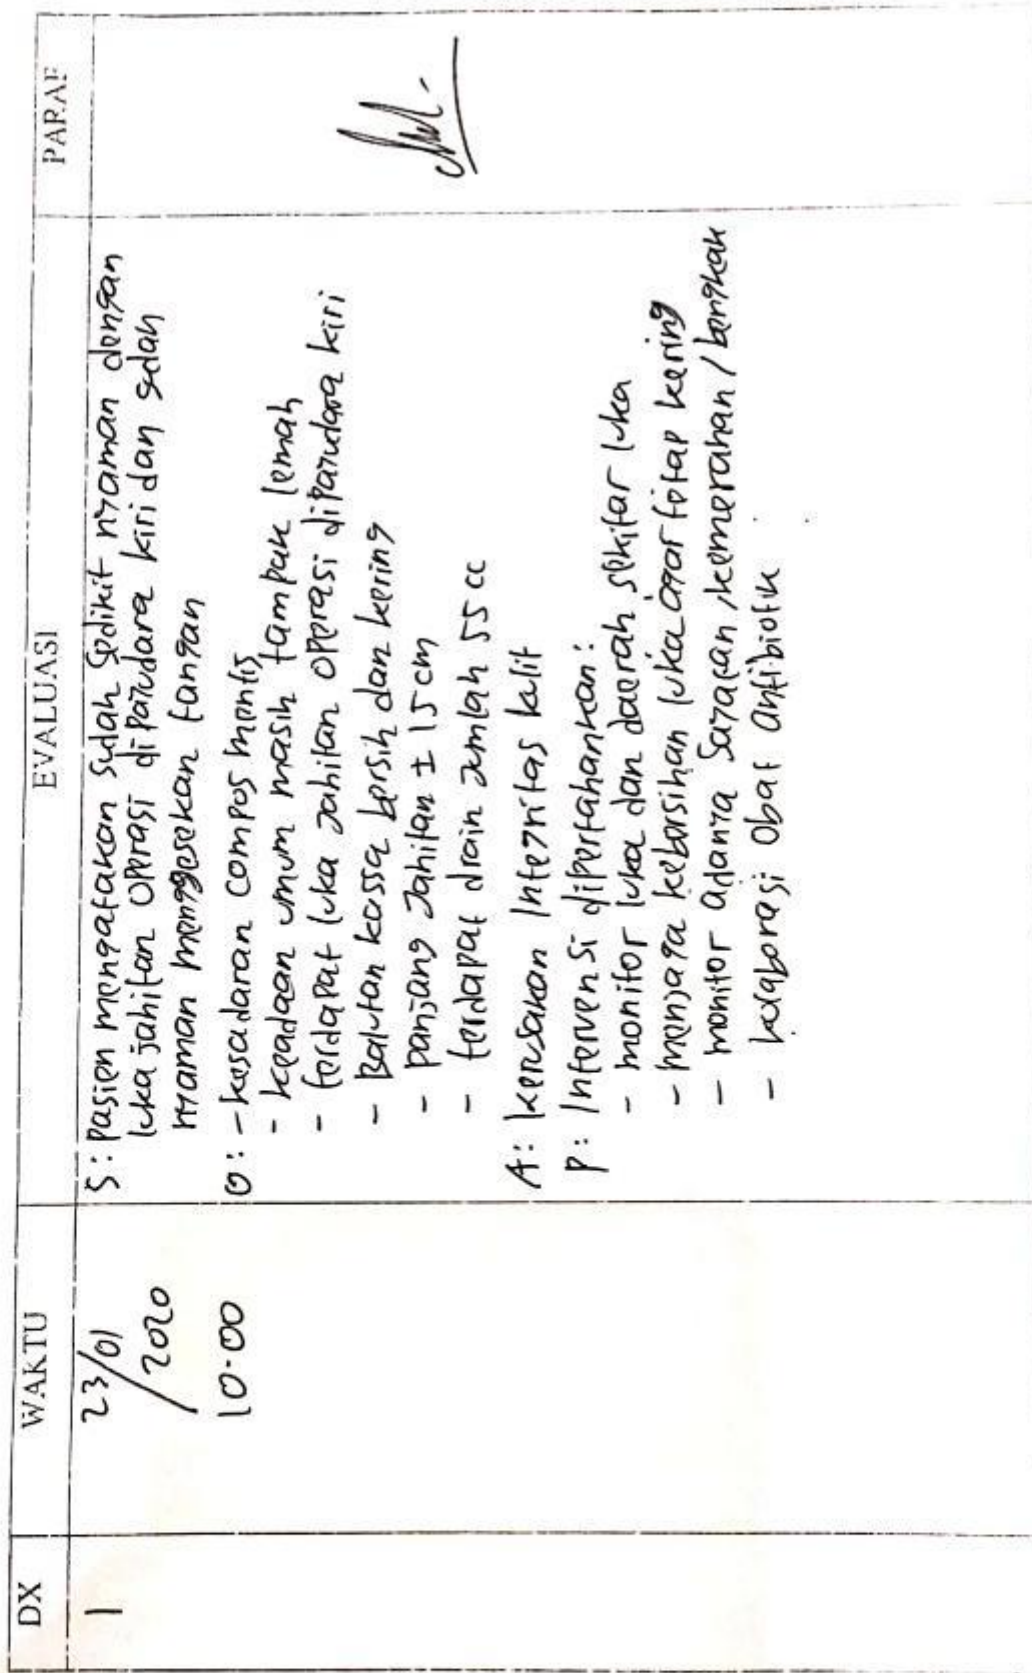 DX WAKTU EVALUASI PARAF
1
23/01
/2020
10.00
S: Pasien mengatakan sudah sedikit nyaman dengan
luka jahitan operasi dipayudara kiri dan sudah
nyaman menggesekan tangan
O: - kesadaran compos mentis
- keadaan umum masih tampak lemah
- terdapat luka jahitan operasi dipayudara kiri
- Balutan kassa bersih dan kering
- panjang jahitan ± 15 cm
- terdapat drain jumlah 55 cc
A: kerusakan Integritas kulit
P: Intervensi dipertahankan:
- monitor luka dan daerah sekitar luka
- menjaga kebersihan luka agar tetap kering
- monitor adanya sayatan, kemerahan / bengkak
- kolaborasi obat antibiotik